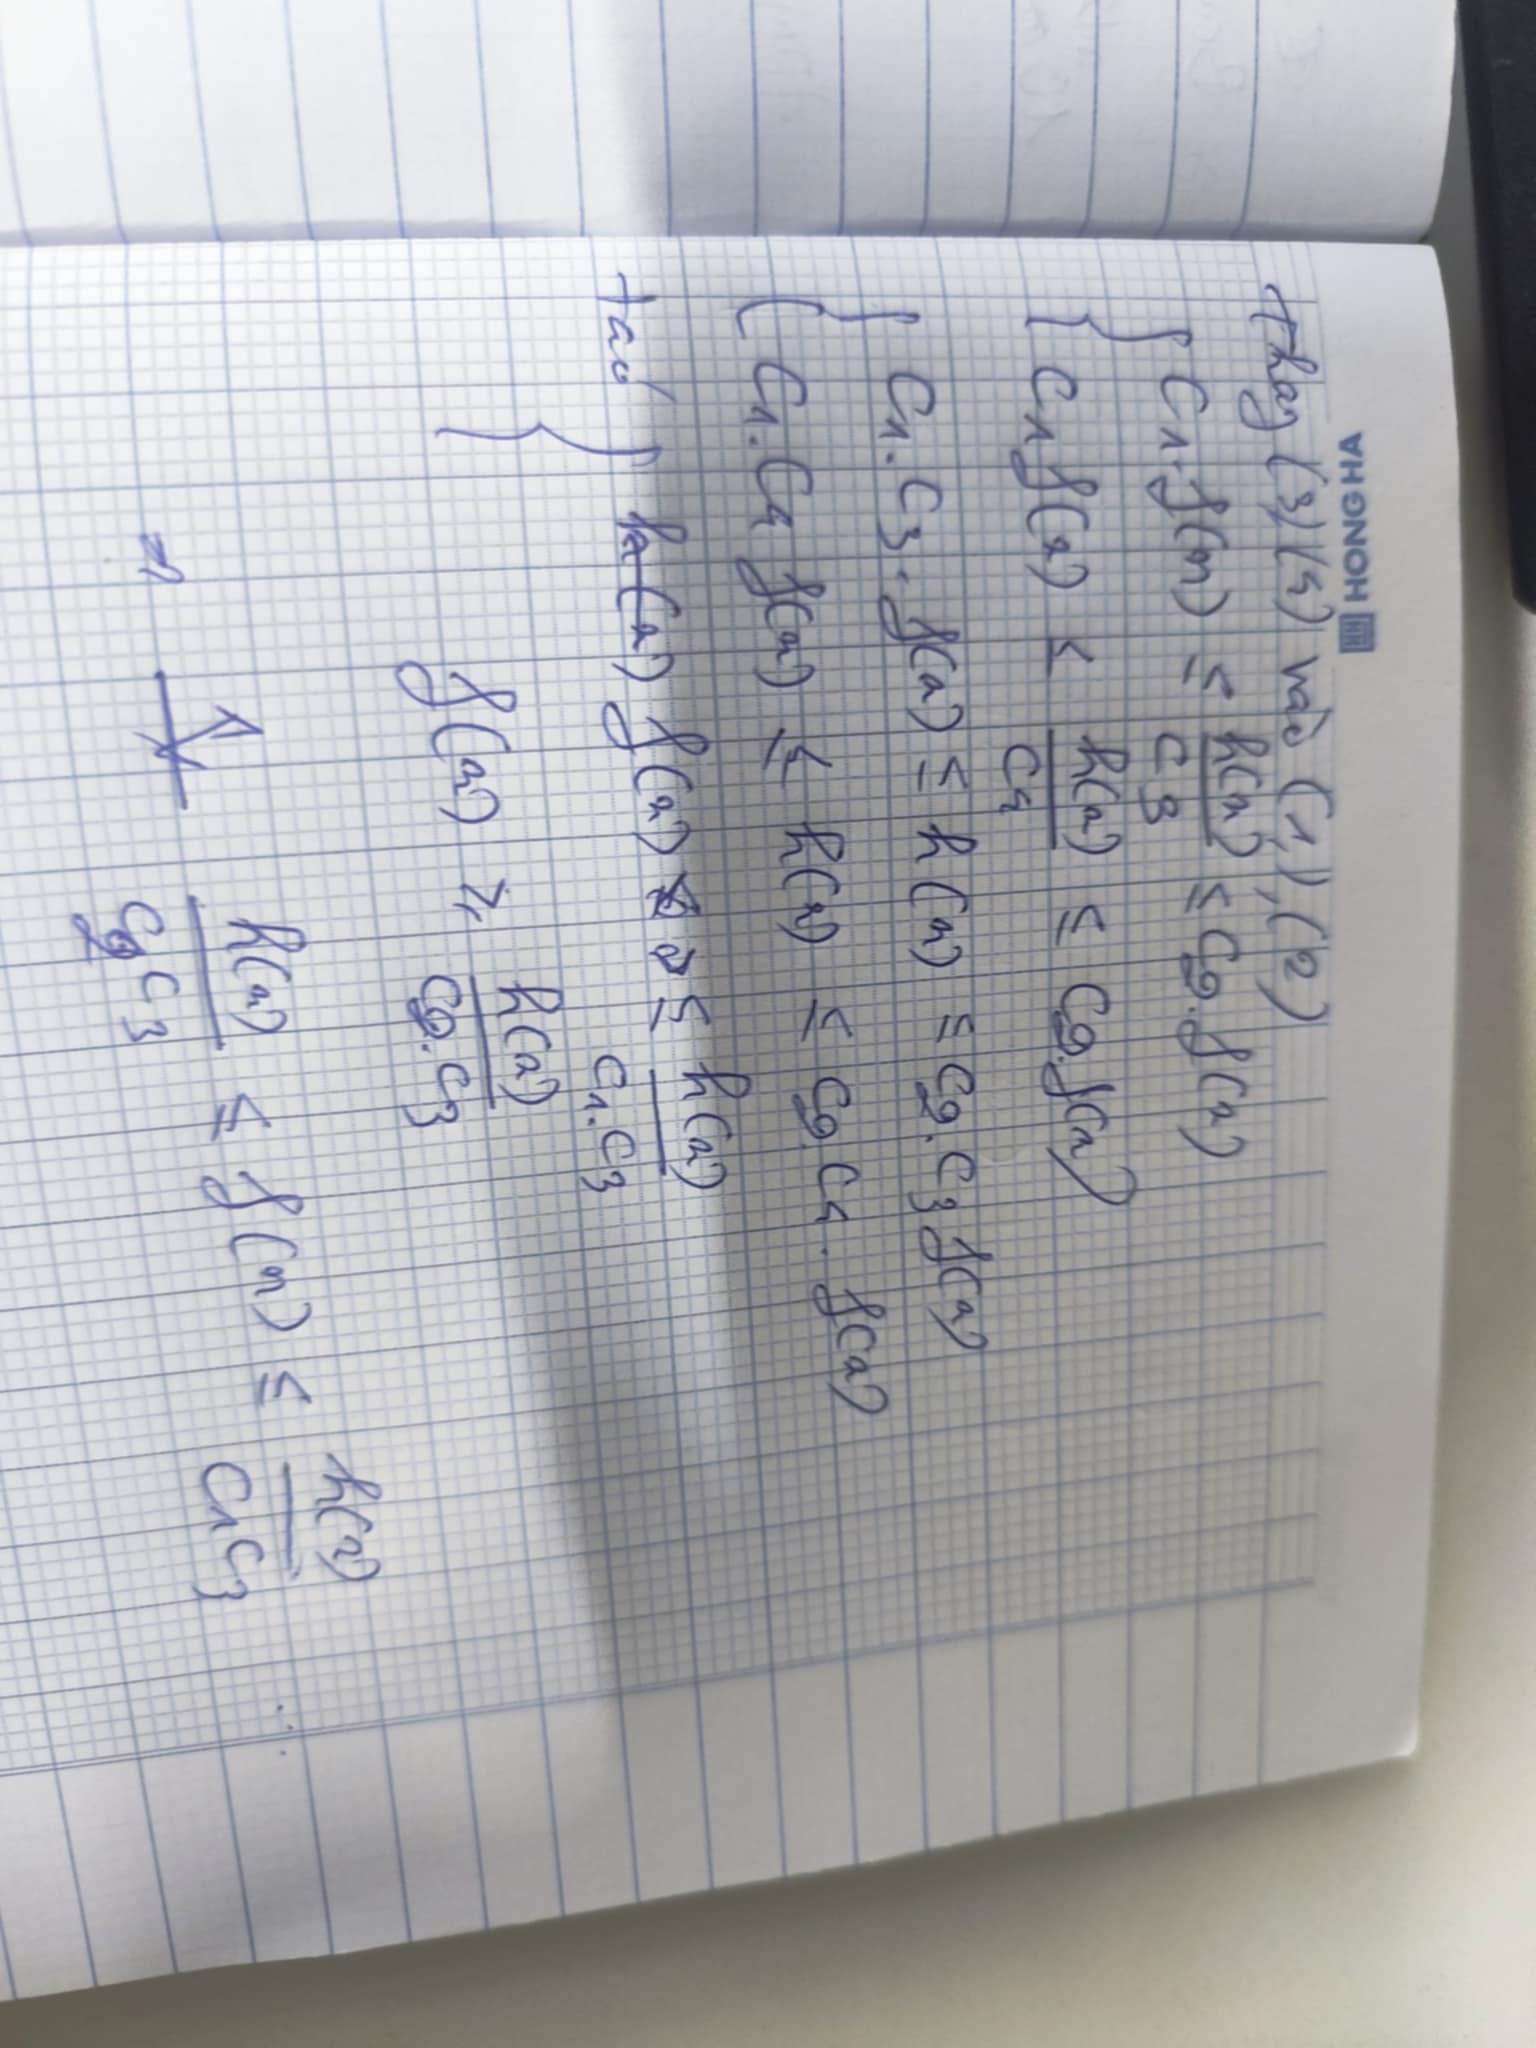 HONG HA
thay (3)(4) vào (1), (2)
{ C1.f(n) ≤ h(n)/C3 ≤ C2.f(n)
{ C1 f(n) ≤ h(n)/C4 ≤ C2.f(n)
{ C1.C3.f(n) ≤ h(n) ≤ C2.C3 f(n)
{ C1.C4 f(n) ≤ h(n) ≤ C2.C4.f(n)
ta có { f(n) ≤ h(n)/C1.C3
{ f(n) ≥ h(n)/C2.C3
⇒ h(n)/C2C3 ≤ f(n) ≤ h(n)/C1C3